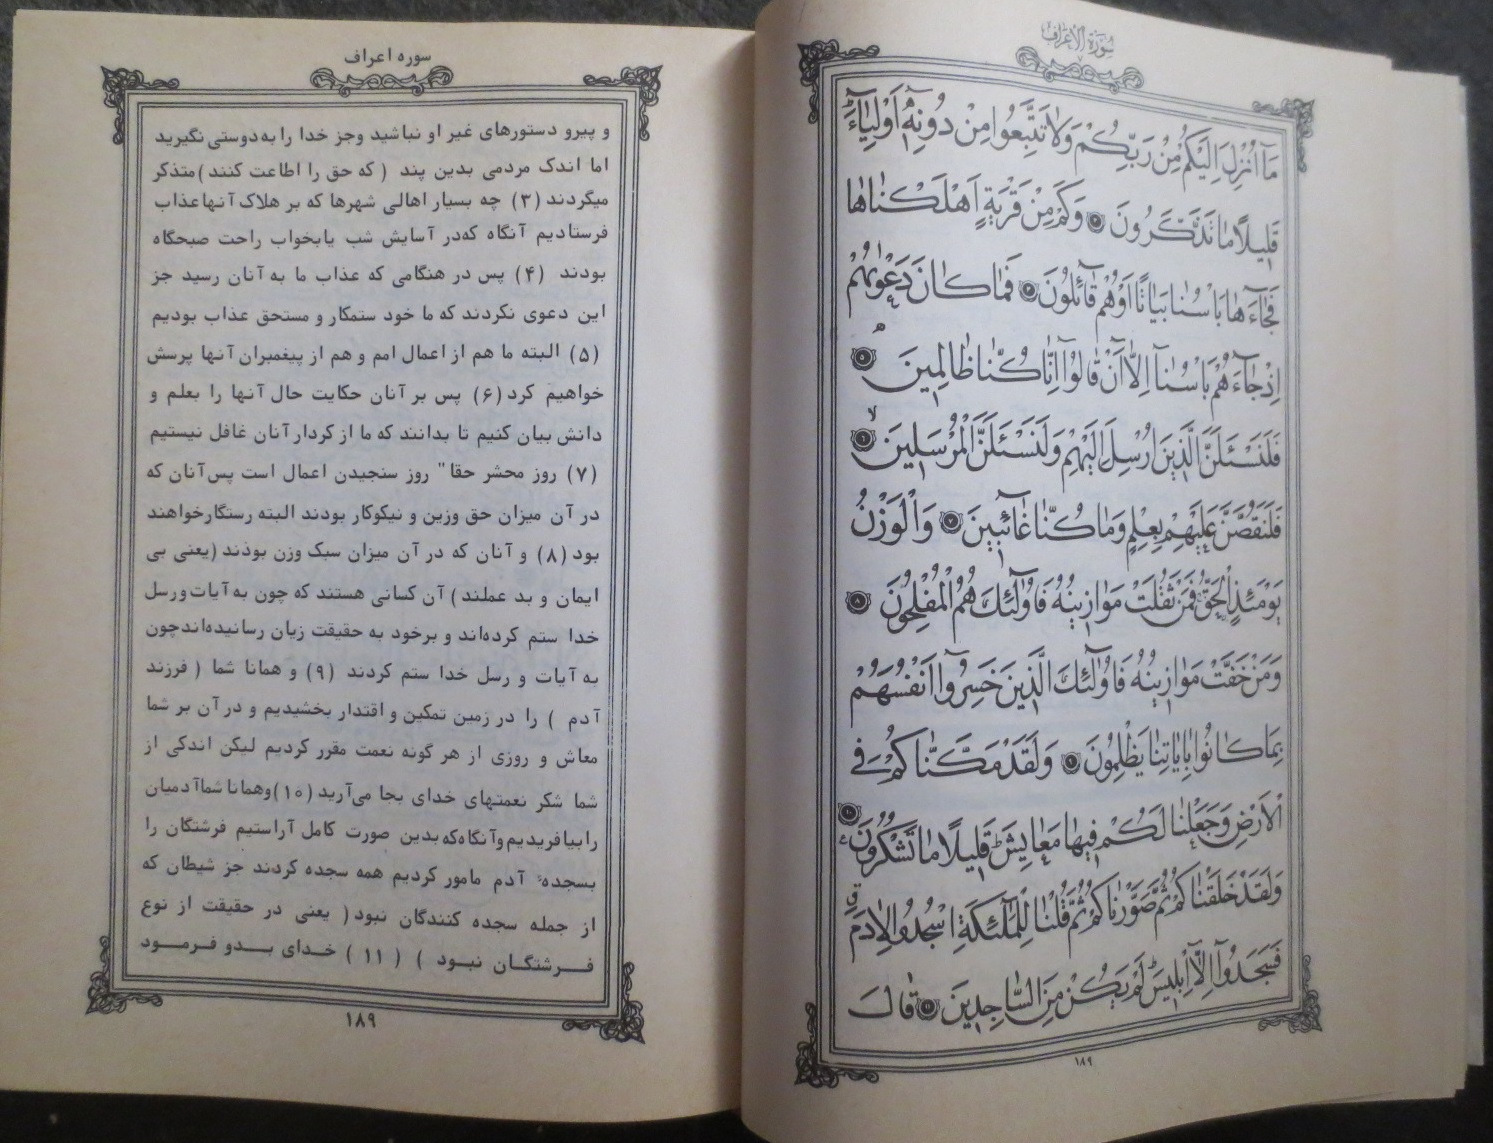 سُورَةُ الْاَعْرَافِ
٧
مَآ اُنْزِلَ اِلَيْكُمْ مِنْ رَبِّكُمْ وَلَا تَتَّبِعُوا مِنْ دُونِهٖٓ اَوْلِيَآءَ
قَلِيلًا مَا تَذَكَّرُونَ ۳ وَكَمْ مِنْ قَرْيَةٍ اَهْلَكْنَاهَا
فَجَآءَهَا بَاْسُنَا بَيَاتًا اَوْ هُمْ قَآئِلُونَ ۴ فَمَا كَانَ دَعْوٰيهُمْ
اِذْ جَآءَهُمْ بَاْسُنَآ اِلَّآ اَنْ قَالُوٓا اِنَّا كُنَّا ظَالِمِينَ ۵
فَلَنَسْئَلَنَّ الَّذِينَ اُرْسِلَ اِلَيْهِمْ وَلَنَسْئَلَنَّ الْمُرْسَلِينَ ۶
فَلَنَقُصَّنَّ عَلَيْهِمْ بِعِلْمٍ وَمَا كُنَّا غَآئِبِينَ ۷ وَالْوَزْنُ
يَوْمَئِذٍ الْحَقُّ فَمَنْ ثَقُلَتْ مَوَازِينُهُ فَاُولٰٓئِكَ هُمُ الْمُفْلِحُونَ ۸
وَمَنْ خَفَّتْ مَوَازِينُهُ فَاُولٰٓئِكَ الَّذِينَ خَسِرُوٓا اَنْفُسَهُمْ
بِمَا كَانُوا بِاٰيَاتِنَا يَظْلِمُونَ ۹ وَلَقَدْ مَكَّنَّاكُمْ فِى
الْاَرْضِ وَجَعَلْنَا لَكُمْ فِيهَا مَعَايِشَ قَلِيلًا مَا تَشْكُرُونَ ۱۰
وَلَقَدْ خَلَقْنَاكُمْ ثُمَّ صَوَّرْنَاكُمْ ثُمَّ قُلْنَا لِلْمَلٰٓئِكَةِ اسْجُدُوا لِاٰدَمَ
فَسَجَدُوٓا اِلَّآ اِبْلِيسَ لَمْ يَكُنْ مِنَ السَّاجِدِينَ ۱۱ قَالَ
۱۸۹
سوره اعراف
و پیرو دستورهای غیر او نباشید وجز خدا را به‌دوستی نگیرید
اما اندک مردمی بدین پند ( که حق را اطاعت کنند )متذکر
میگردند (۳) چه بسیار اهالی شهرها که بر هلاک آنهاعذاب
فرستادیم آنگاه که‌در آسایش شب یابخواب راحت صبحگاه
بودند (۴) پس در هنگامی که عذاب ما به آنان رسید جز
این دعوی نکردند که ما خود ستمکار و مستحق عذاب بودیم
(۵) البته ما هم از اعمال امم و هم از پیغمبران آنها پرسش
خواهیم کرد(۶) پس بر آنان حکایت حال آنها را بعلم و
دانش بیان کنیم تا بدانند که ما از کردار آنان غافل نیستیم
(۷) روز محشر حقا" روز سنجیدن اعمال است پس‌آنان که
در آن میزان حق وزین و نیکوکار بودند البته رستگارخواهند
بود(۸) و آنان که در آن میزان سبک وزن بوذند (یعنی بی
ایمان و بد عملند ) آن کسانی هستند که چون به آیات‌ورسل
خدا ستم کرده‌اند و برخود به حقیقت زیان رسانیده‌اندچون
به آیات و رسل خدا ستم کردند (۹) و همانا شما ( فرزند
آدم ) را در زمین تمکین و اقتدار بخشیدیم و در آن بر شما
معاش و روزی از هر گونه نعمت مقرر کردیم لیکن اندکی از
شما شکر نعمتهای خدای بجا می‌آرید (۱۰)وهمانا شماآدمیان
را بیافریدیم وآنگاه‌که بدین صورت کامل آراستیم فرشتگان را
بسجدهٔ آدم مامور کردیم همه سجده کردند جز شیطان که
از جمله سجده کنندگان نبود( یعنی در حقیقت از نوع
فرشتگان نبود ) (۱۱) خدای بدو فرمود
۱۸۹